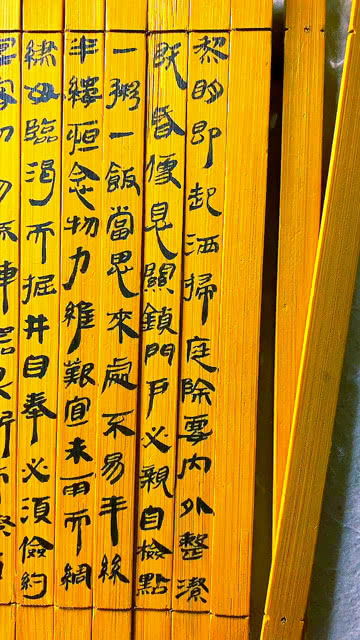 黎明即起洒掃庭除要內外整潔
既昏便息關鎖門戶必親自檢點
一粥一飯當思來處不易半絲
半縷恒念物力維艱宜未雨而綢
繆毋臨渴而掘井自奉必須儉約